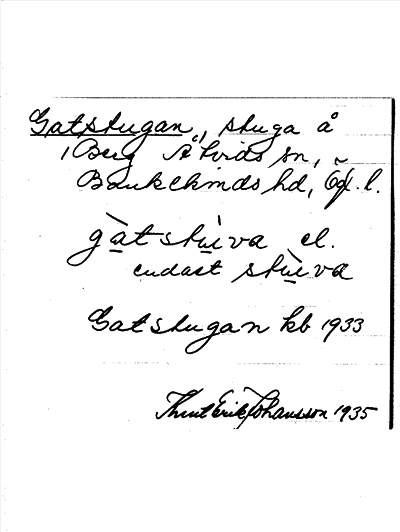 Gatstugan, stuga å
Berg Å tvids sn,
Bankekinds hd, Ögl. l.
gàtstu̇va el.
endast stùva
Gatstugan kb 1933
Knut Erik Johansson 1935